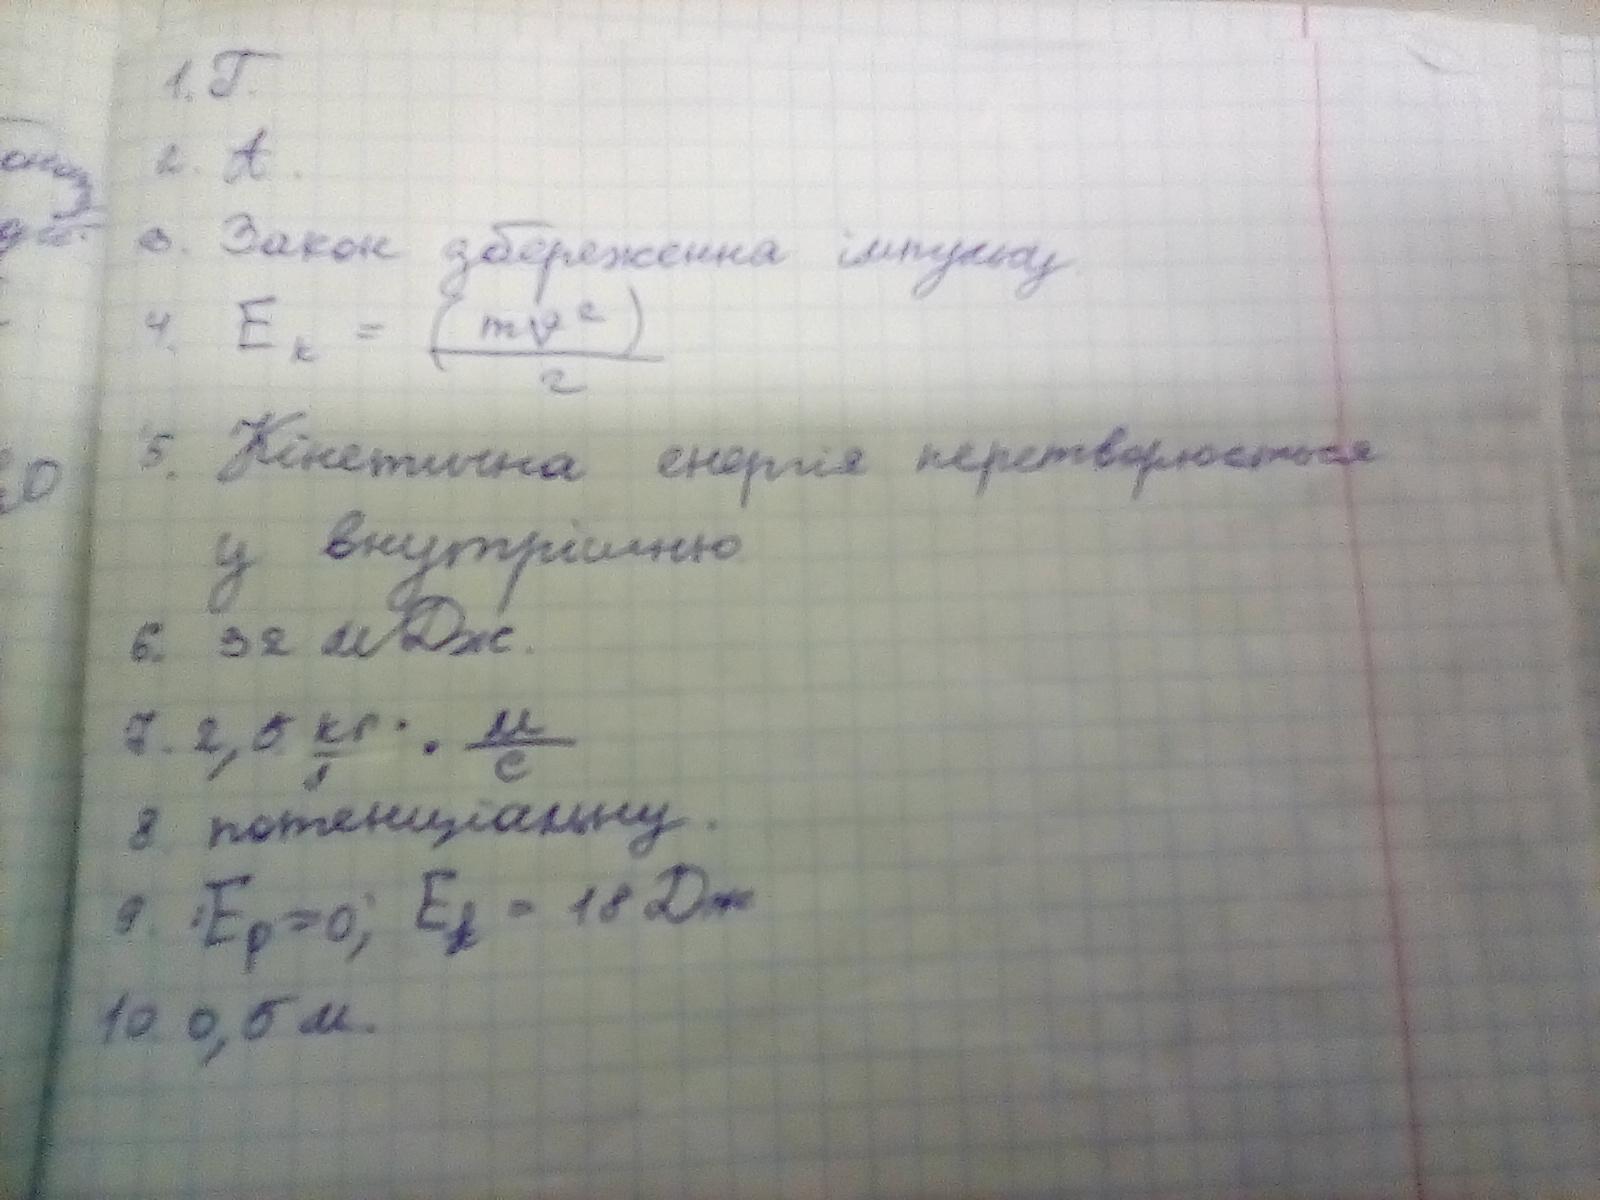 1. Г.
2. А.
3. Закон збереження імпульсу
4. Eк = (mv²)/2
5. Кінетична енергія перетворюється
у внутрішню
6. 32 мДж.
7. 2,5 кг · м/с
8 потенціальну.
9. Ep=0; Ek = 18 Дж
10 0,5 м.